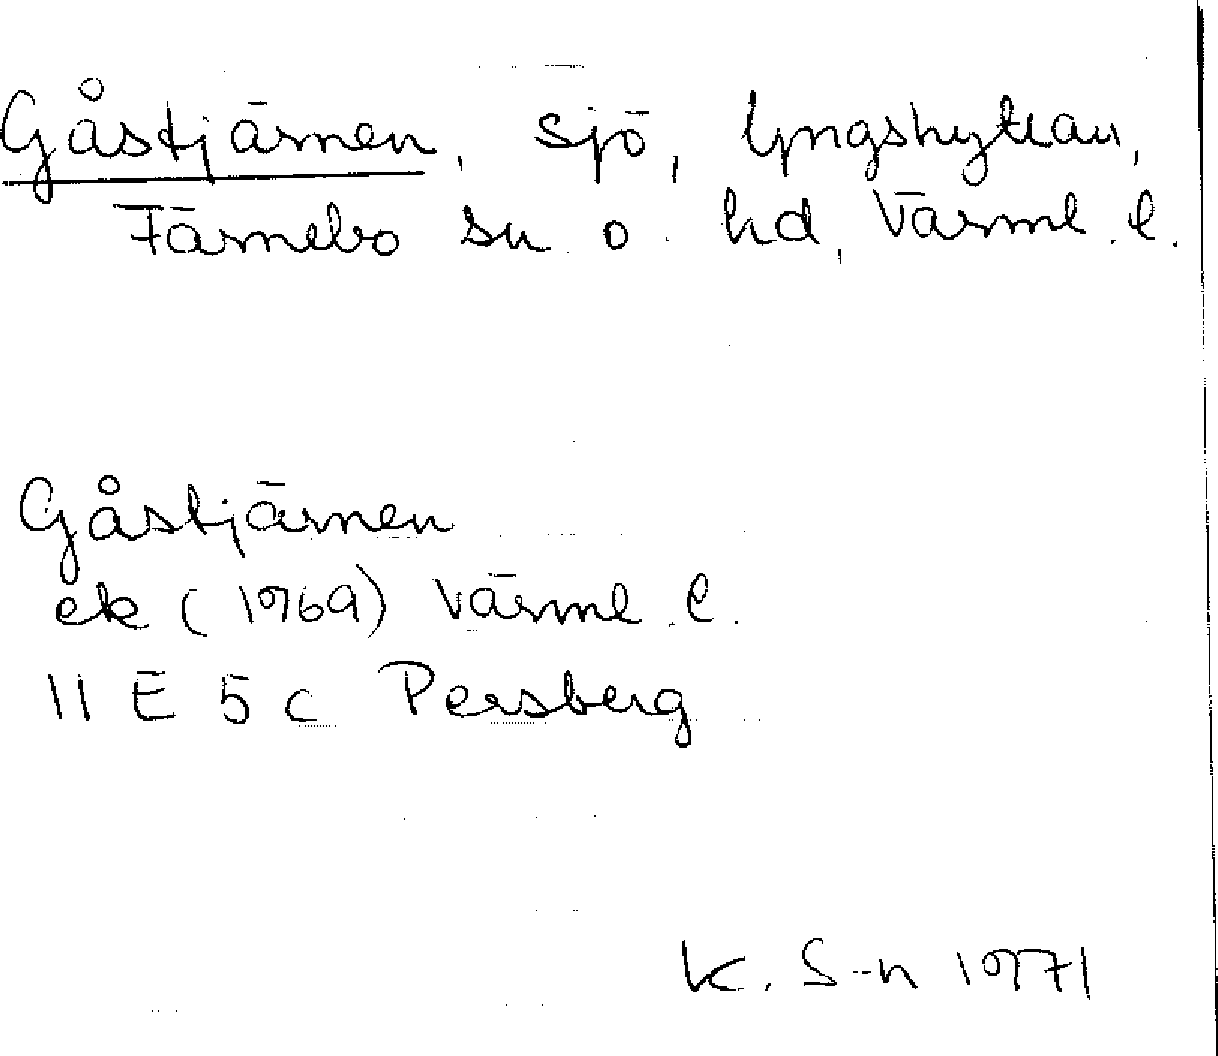 Gåstjärnen, sjö, Yngshyttan,
Färnebo sn o. hd, Värml. l.
Gåstjärnen
ek (1969) Värml. l.
11 E 5 c Persberg
K. S-n 1971